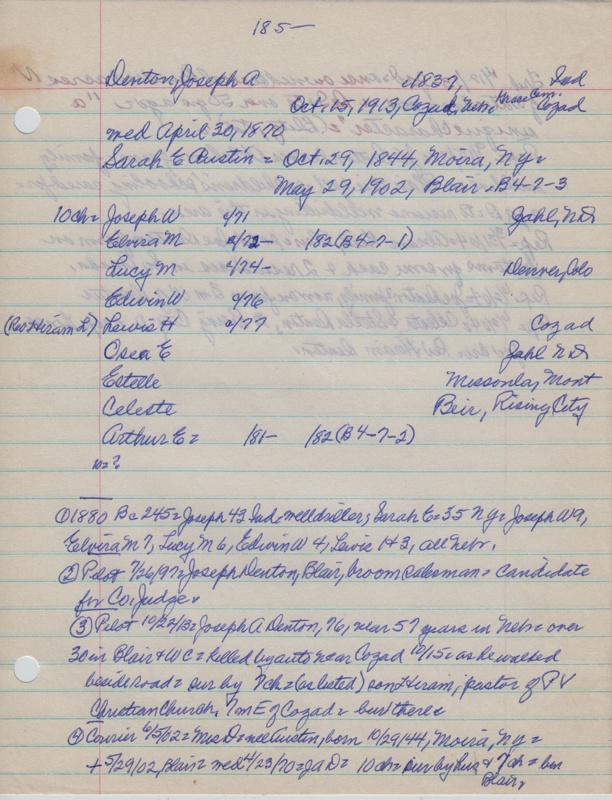 185-
Denton, Joseph A c1837, Ind
Oct. 15, 1913, Cozad, Nebr. Cem. Cozad
med April 30, 1870
Sarah E Austin = Oct. 29, 1844, Moira, Ny =
May 29, 1902, Blair = B4-7-3
10ch = Joseph W c/71 Zahl, ND
Elvira M c/72- /82 (B4-7-1)
Lucy M c/74- Denver, Colo
Edwin W c/76
(Rev Hiram L) Lewis H c/77 Cozad
Osca E Zahl ND
Estelle Missonla, Mont
Celeste Beir, Rising City
Arthur E = /81- /82 (B4-7-2)
10 = ?
① 1880 Bc 245 = Joseph 43 Ind = welldriller; Sarah E = 35 Ny = Joseph W 9,
Elvira M 7, Lucy M 6, Edwin W 4, Lewis H 3, all Nebr.
② Pilot 7/26/97 = Joseph Denton, Blair, broom salesman = candidate
for Co. Judge.
③ Pilot 10/22/13 = Joseph A Denton, 76, near 57 years in Nebr = over
30 in Blair + WC = killed by auto near Cozad 10/15 = as he walked
beside road = sur by 7ch = (as listed) son Hiram, pastor of PV
Christian Church, 7m E of Cozad = bur there
④ Courier 6/5/02 = Mrs D = nee Austin, born 10/29/44, Moira, Ny =
+ 5/29/02, Blair = med 4/23/70 = JaD = 10ch = sur by hus & 7ch = bur
Blair,